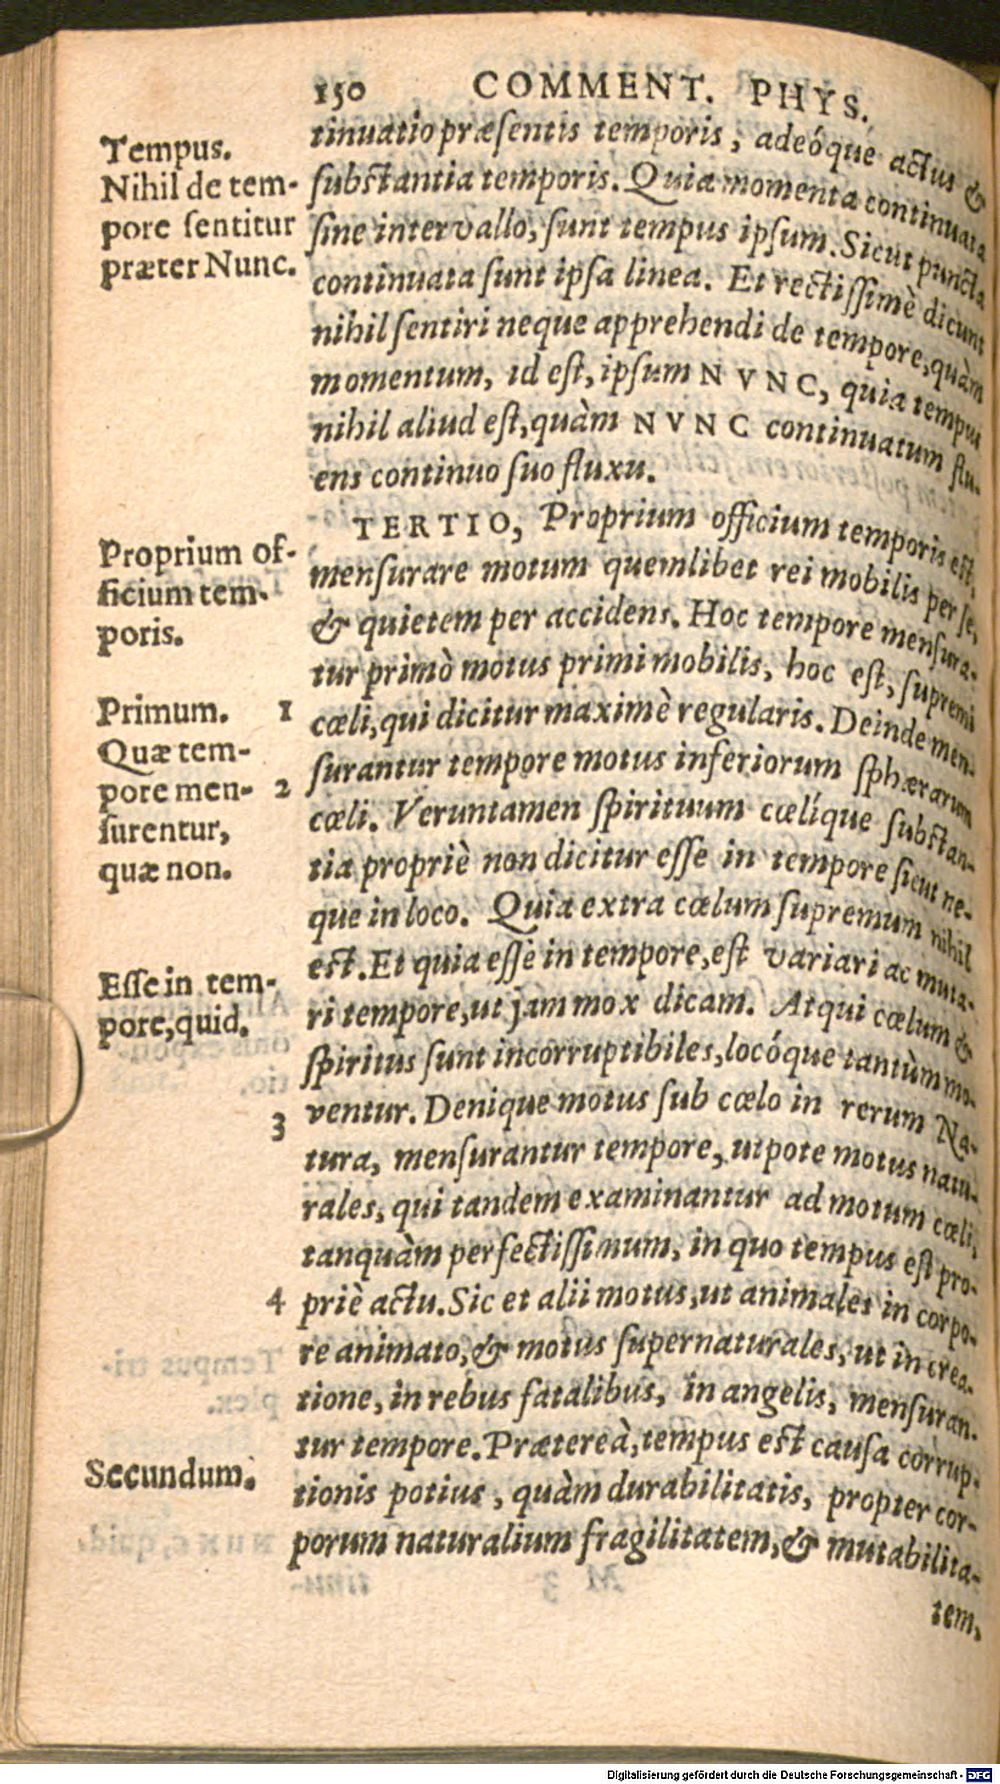 150 COMMENT. PHYS.
Tempus.
Nihil de tem-
pore sentitur
præter Nunc.
tinuatio præsentis temporis, adeóque actus &
substantia temporis. Quia momenta continuata
sine intervallo, sunt tempus ipsum. Sicut puncta
continuata sunt ipsa linea. Et rectissimè dicunt
nihil sentiri neque apprehendi de tempore, quàm
momentum, id est, ipsum NVNC, quia tempus
nihil aliud est, quàm NVNC continuatum flu-
ens continuo suo fluxu.
Proprium of-
ficium tem-
poris.
TERTIO, Proprium officium temporis est,
mensurare motum quemlibet rei mobilis per se,
& quietem per accidens. Hoc tempore mensura-
tur primò motus primi mobilis, hoc est, supremi
Primum. 1
Quæ tem-
pore men- 2
surentur,
quæ non.
cœli, qui dicitur maximè regularis. Deinde men-
surantur tempore motus inferiorum sphærarum
cœli. Veruntamen spirituum cœlíque substan-
tia propriè non dicitur esse in tempore sicut ne-
que in loco. Quia extra cœlum supremum nihil
Esse in tem-
pore, quid.
est. Et quia esse in tempore, est variari ac muta-
ri tempore, ut jam mox dicam. Atqui cœlum &
spiritus sunt incorruptibiles, locóque tantùm mo-
3
ventur. Denique motus sub cœlo in rerum Na-
tura, mensurantur tempore, utpote motus natu-
rales, qui tandem examinantur ad motum cœli,
tanquàm perfectissimum, in quo tempus est pro-
4
priè actu. Sic et alii motus, ut animales in corpo-
re animato, & motus supernaturales, ut in crea-
tione, in rebus fatalibus, in angelis, mensuran-
tur tempore. Prætereà, tempus est causa corrup-
Secundum.
tionis potius, quàm durabilitatis, propter cor-
porum naturalium fragilitatem, & mutabilita-
tem,
Digitalisierung gefördert durch die Deutsche Forschungsgemeinschaft - DFG